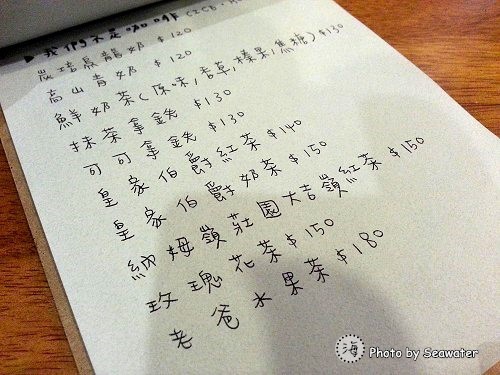 ▶ 我們不是咖啡 (ICE.HO
炭焙烏龍奶 $120
高山青奶 $120
鮮奶茶(原味,香草,榛果,焦糖) $130
抹茶拿鉄 $130
可可拿鉄 $130
皇家伯爵紅茶 $140
皇家伯爵奶茶 $150
納姆嶺莊園大吉嶺紅茶 $150
玫瑰花茶 $150
老爸水果茶 $180
海 Photo by Seawater